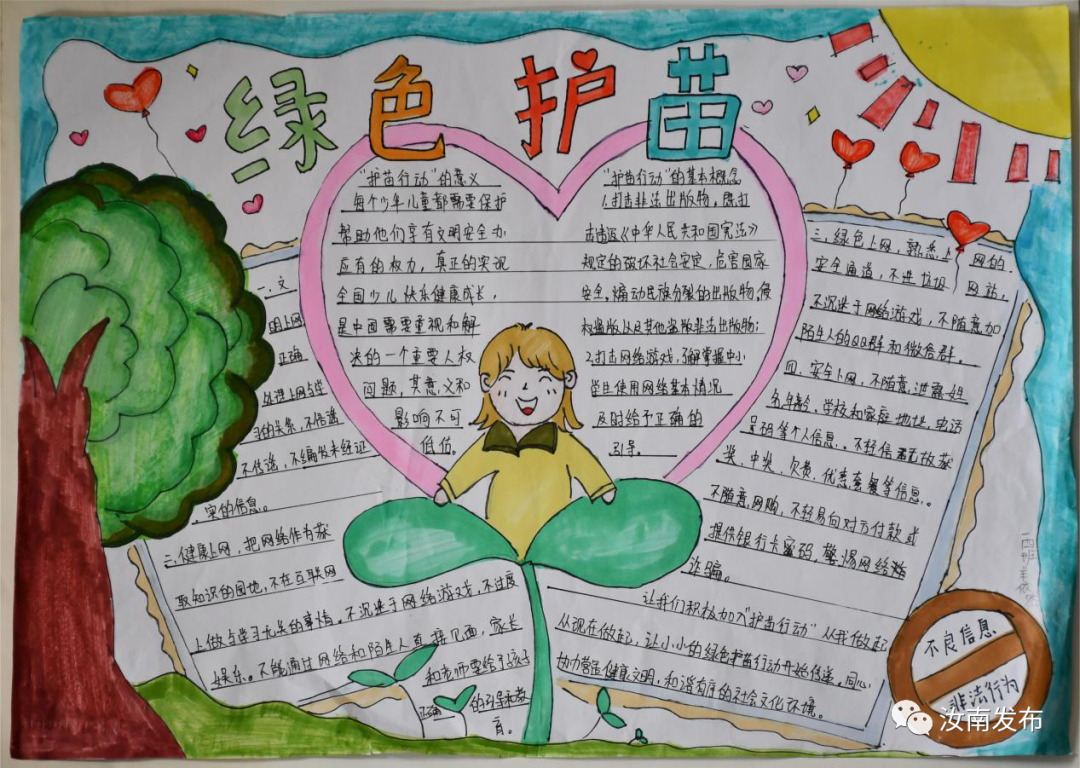 绿色护苗
"护苗行动"的意义
每个少年儿童都需要保护
帮助他们享有文明安全办
应有的权力，真正的实现
全国少儿快乐健康成长，
是中国需要重视和解
决的一个重要人权
问题，其意义和
影响不可
低估。
"护苗行动"的基本概念
1.打击非法出版物，
《中华人民共和国宪法》
规定的破坏社会安定，危害国家
安全，煽动民族分裂的出版物，侵
权盗版以及其他盗版非法出版物；
2.打击网络游戏，了解掌握中小
学生使用网络基本情况
及时给予正确的
引导。
一.文
明上网
正确
处理上网与学
习的关系，不信谣
不传谣，不编发未经证
实的信息。
健康上网，把网络作为获
取知识的园地，不在互联网
上做与学习无关的事情。不沉迷于网络游戏，不过度
娱乐。不能通过网络和陌生人直接见面，家长
和老师要给予孩子
正确的引导和教
育。
三.绿色上网，熟悉上网的
安全通道，不进垃圾网站，
不沉迷于网络游戏，不随意加
陌生人的QQ群和微信群。
四.安全上网，不随意泄露姓
名年龄，学校和家庭地址，电话
号码等个人信息。不轻信
奖，中奖，欠费，优惠套餐等信息。
不随意网购，不轻易向对方付款或
提供银行卡密码，警惕网络
诈骗。
让我们积极加入"护苗行动"从我做起
从现在做起，让小小的绿色护苗行动开始传递。同心
协力营造健康文明，和谐有序的社会文化环境。
不良信息
非法行为
汝南发布